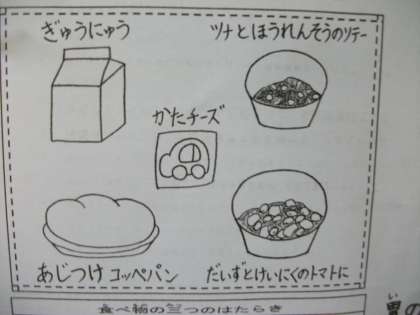 ぎゅうにゅう
ツナとほうれんそうのソテー
かたチーズ
あじつけ コッペパン
だいずとけいにくのトマトに
食べ物の三つのはたらき
い
胃の